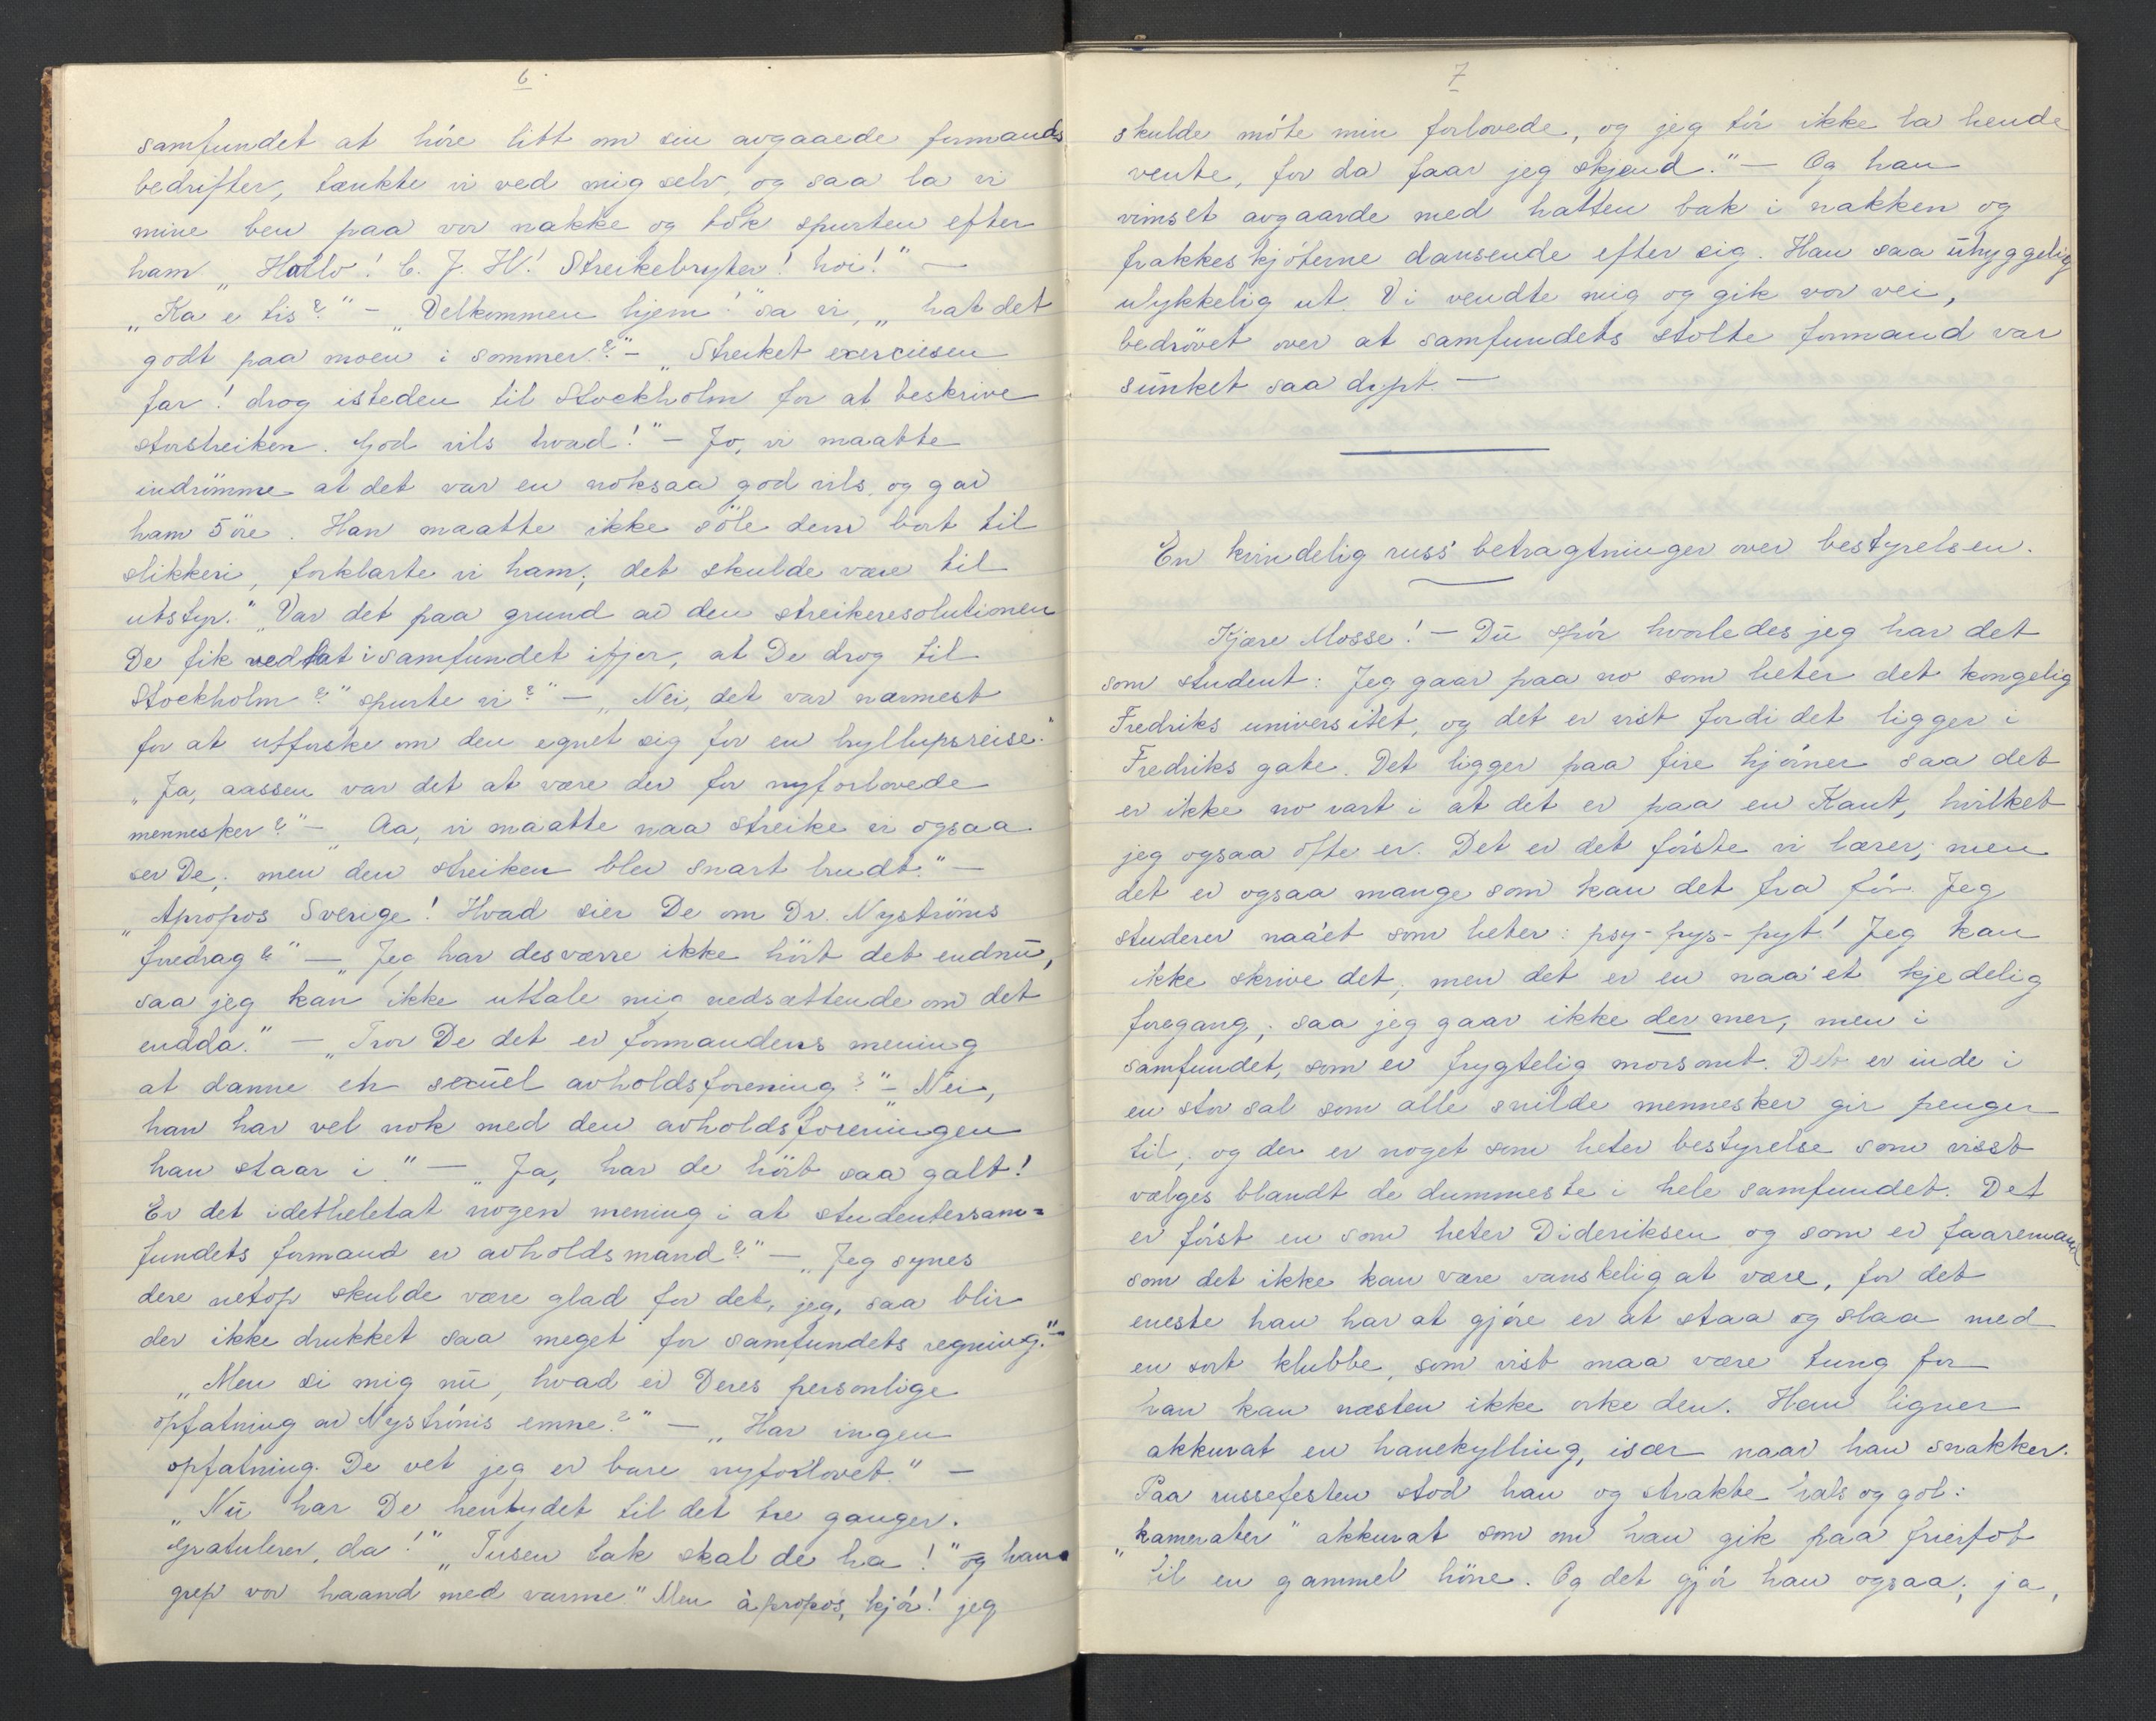 6
samfundet at höre litt om sin avgaaede formands
bedrifter, tænkte vi ved mig selv, og saa la vi
mine ben paa vor nakke og tok spurten efter
ham „Hallo! C. J. H! Streikebryter! hoi!" —
„Ka e tis?" — „Velkommen hjem!" sa vi, „hat det
godt paa moen i sommer?" — „Streiket exerciesen
far! drog isteden til Stockholm for at beskrive
storstreiken. God vits hvad!" — Jo, vi maatte
indrömme at det var en noksaa god vits, og gav
ham 5 öre. Han maatte ikke söle dem bort til
slikkeri, forklarte vi ham; det skulde være til
utstyr. „Var det paa grund av den streikeresolutionen
De fik vedtat i samfundet ifjor, at De drog til
Stockholm?" spurte vi?" — „Nei, det var nærmest
for at utforske om den egnet sig for en bryllupsreise."
„Ja, aassen var det at være der for nyforlovede
mennesker?" — „Aa, vi maatte naa streike vi ogsaa
ser De; men den streiken blev snart brudt." —
„Apropos Sverige! Hvad sier De om Dr. Nyströms
foredrag?" — „Jeg har desværre ikke hört det endnu,
saa jeg kan ikke uttale mig nedsættende om det
endda." — „Tror De det er formandens mening
at danne en sexuel avholdsforening?" — „Nei,
han har vel nok med den avholdsforeningen
han staar i." — „Ja, har de hört saa galt!
Er det idetheletat nogen mening i at studentersam=
fundets formand er avholdsmand?" — „Jeg synes
dere netop skulde være glad for det, jeg, saa blir
der ikke drukket saa meget for samfundets regning." —
„Men si mig nu, hvad er Deres personlige
opfatning av Nyströms emne?" — „Har ingen
opfatning. De vet jeg er bare nyforlovet." —
„Nu har De hentydet til det tre ganger.
Gratulerer, da!" „Tusen tak skal de ha!" og han
grep vor haand med varme. "Men àpropos, kjör! jeg
7
skulde möte min forlovede, og jeg tör ikke la hende
vente, for da faar jeg skjend." — Og han
vimset avgaarde med hatten bak i nakken og
frakkeskjöterne dansende efter sig. Han saa uhyggelig
ulykkelig ut. Vi vendte mig og gik vor vei,
bedrövet over at samfundets stolte formand var
sunket saa dypt —
En kvindelig russ' betragtninger over bestyrelsen.
Kjære Mosse! — Du spör hvorledes jeg har det
som student: Jeg gaar paa no som heter det kongelig
Fredriks universitet, og det er vist fordi det ligger i
Fredriks gate. Det ligger paa fire hjörner saa det
er ikke no rart i at det er paa en Kant, hvilket
jeg ogsaa ofte er. Det er det förste vi lærer; men
det er ogsaa mange som kan det fra för. Jeg
studerer naa'et som heter: psy-pys-pyt! Jeg kan
ikke skrive det, men det er en naa'et kjedelig
foregang; saa jeg gaar ikke der mer, men i
samfundet, som er frygtelig morsomt. Det er inde i
en stor sal som alle snilde mennesker gir penger
til, og der er noget som heter bestyrelse som visst
vælges blandt de dummeste i hele samfundet. Det
er först en som heter Dideriksen og som er faaremand
som det ikke kan være vanskelig at være, for det
eneste han har at gjöre er at staa og slaa med
en sort klubbe, som vist maa være tung for
han kan næsten ikke orke den. Han ligner
akkurat en hanekylling, især naar han snakker.
Paa russefesten stod han og strakte hals og gol:
„kamerater" akkurat som om han gik paa frierfot
til en gammel höne. Og det gjör han ogsaa; ja,